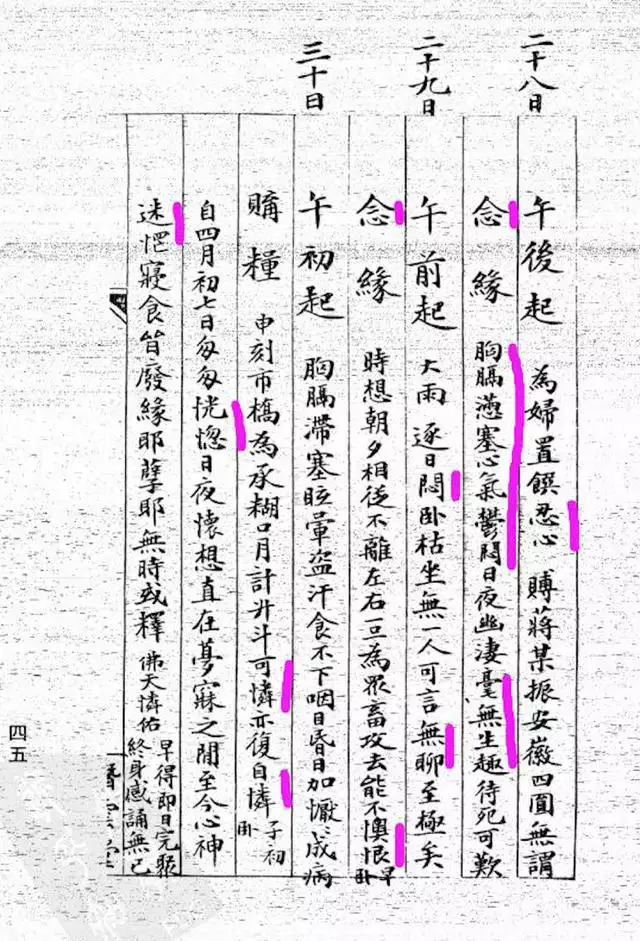 二十八日
午後起 為婦置饌忍心 賻蔣某振安徽四圓無謂
念緣 胸膈懣塞心氣鬱悶日夜幽淒毫無生趣待死可歎
二十九日
午前起 大雨逐日悶臥枯坐無一人可言無聊至極矣
念緣 時想朝夕相從不離左右一旦為眾畜攻去能不懊恨 早臥
三十日
午初起 胸膈滯塞眩暈盜汗食不下咽日昏日加懨懨成病
購糧 申刻市橋為承糊口月計升斗可憐亦復自憐 子初臥
自四月初七日匆匆恍惚日夜懷想直在夢寐之間至今心神
迷惘寢食皆廢緣耶孽耶無時或釋 佛天憐佑 早得即日完聚 終身感誦無已
四五